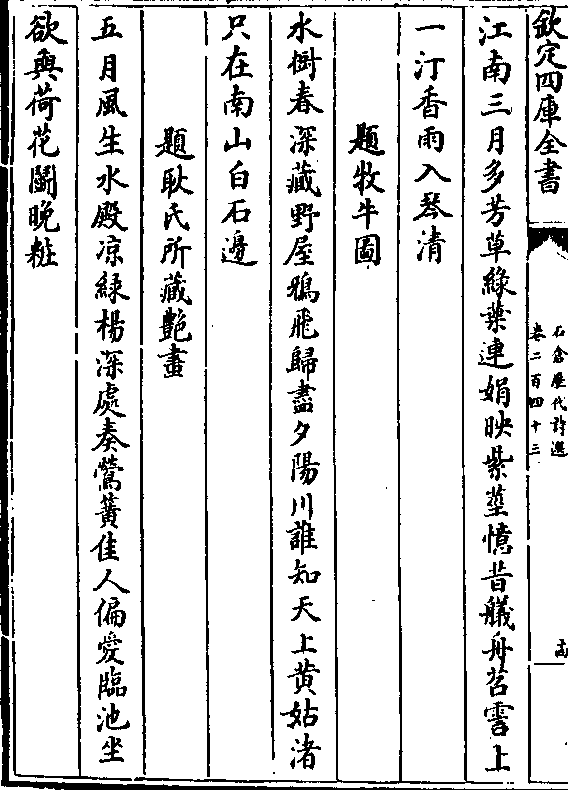 欽定四庫全書
石倉歷代詩選
卷二百四十三
江南三月多芳草綠葉連娟映紫莖憶昔艤舟苕霅上
一汀香雨入琴清
題牧牛圖
水樹春深藏野屋鴉飛歸盡夕陽川誰知天上黄姑渚
只在南山白石邊
題耿氏所藏艶畫
五月風生水殿凉緑楊深處奏鶯簧佳人偏愛臨池坐
欲與荷花鬭晚粧